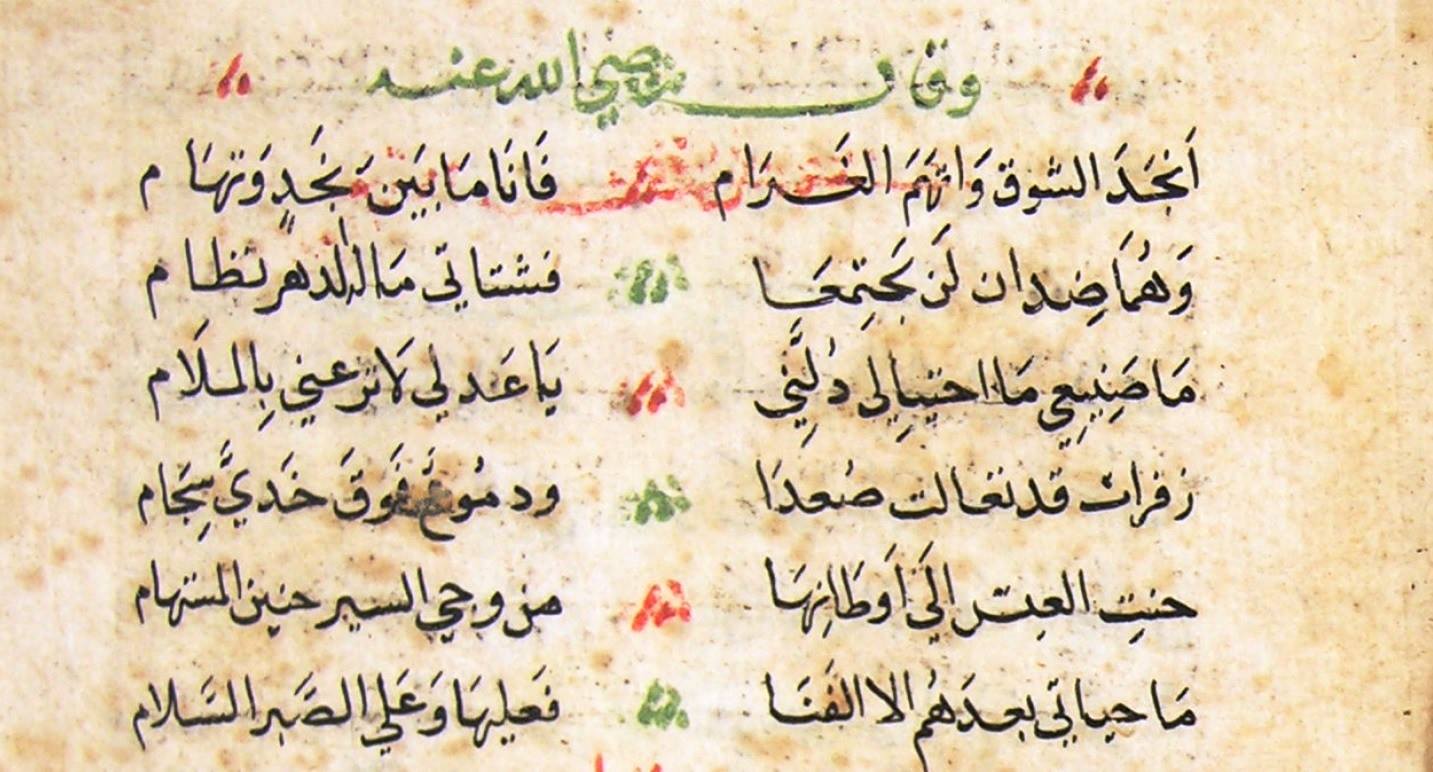 وقال رضي الله عنه
اَنْجَدَ الشوق وَاتْهَمَ الغَرَام فَانَا مَا بَيَن نَجْدٍ وَتهَام
وَهُمَا ضِدان لَن يَجْتمعَا فشتاتي مَا الدهر نظام
مَا صَنِيعي مَا احتيالِي دُلَّنِي يَا عَدلي لَا ترعني بِالملَام
زفرات قد تعالت صُعدَا ودمُوعٌ فَوقَ خَديَّ سِجَام
حنتِ العيس الَى اَوطَانِهَا من وجي السير حنين المستهام
مَا حياتي بعدَهُم الا الفَنَا فَعليهَا وَعَلي الصَّبر السَّلام